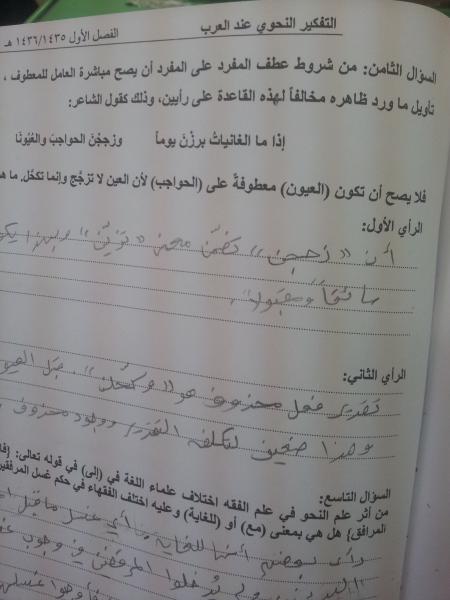 التفكير النحوي عند العرب
الفصل الأول ١٤٣٦/١٤٣٥ هـ
السؤال الثامن: من شروط عطف المفرد على المفرد أن يصح مباشرة العامل للمعطوف ،
تأويل ما ورد ظاهره مخالفاً لهذه القاعدة على رأيين، وذلك كقول الشاعر:
إذا ما الغانياتُ برزْنَ يوماً وزججْنَ الحواجبَ والعُيُونَا
فلا يصح أن تكون (العيون) معطوفةً على (الحواجب) لأن العين لا تزجَّج وإنما تكحّل. ما هم
الرأي الأول:
أن «زججن» تضمّن معنى «زيّنّ» وبهذا يكو
سائغاً ومقبولاً.
الرأي الثاني:
تقدير فعل محذوف هو «وكحّلن» قبل العيو
وهذا ضعيف لتكلفه التقدير ووجود محذوف
السؤال التاسع:
من أثر علم النحو في علم الفقه اختلاف علماء اللغة في (إلى) في قوله تعالى: {فا
المرافق} هل هي بمعنى (مع) أو (للغاية) وعليه اختلف الفقهاء في حكم غسل المرفقين
رأى بعضهم أنها للغاية أي غسل ما قبل
يدخلوا المرفقين في وجوب